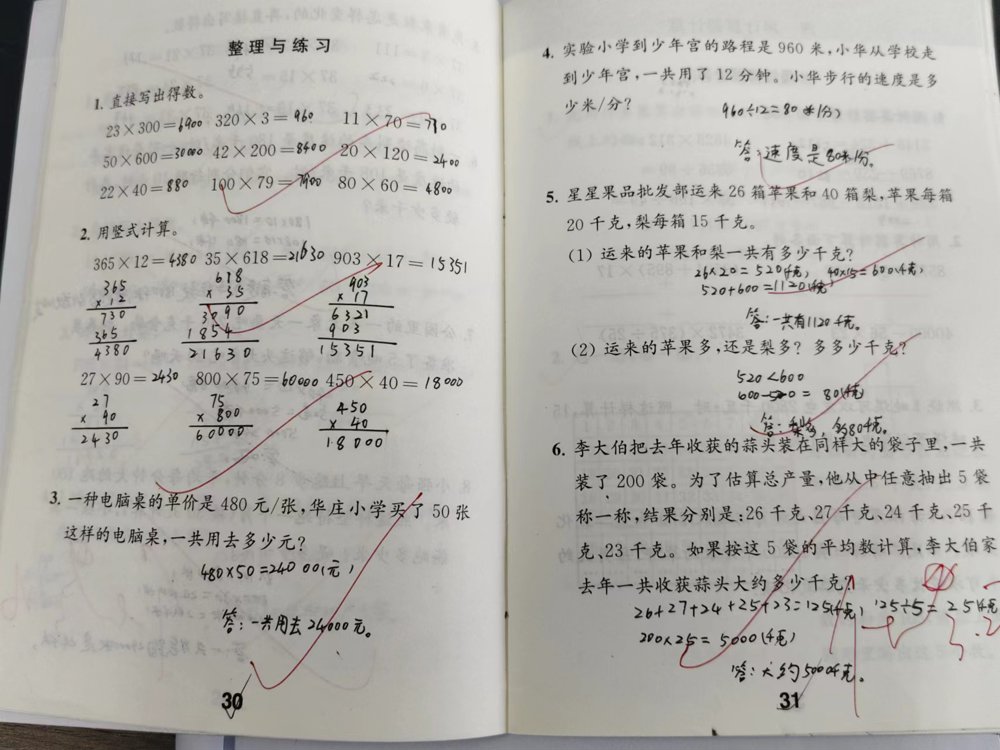 整理与练习
1. 直接写出得数。
23×300=6900 320×3=960 11×70=770
50×600=30000 42×200=8400 20×120=2400
22×40=880 100×79=7900 80×60=4800
2. 用竖式计算。
365×12=4380 35×618=21630 903×17=15351
365 618 903
×12 ×35 ×17
730 3090 6321
365 1854 903
4380 21630 15351
27×90=2430 800×75=60000 450×40=18000
27 75 450
×90 ×800 ×40
2430 60000 18000
3. 一种电脑桌的单价是480元/张,华庄小学买了50张
这样的电脑桌,一共用去多少元?
480×50=24000(元)
答:一共用去24000元。
30
4. 实验小学到少年宫的路程是960米,小华从学校走
到少年宫,一共用了12分钟。小华步行的速度是多
少米/分?
960÷12=80(米/分)
答:速度是80米/分。
5. 星星果品批发部运来26箱苹果和40箱梨,苹果每箱
20千克,梨每箱15千克。
(1) 运来的苹果和梨一共有多少千克?
26×20=520(千克) 40×15=600(千克)
520+600=1120(千克)
答:一共有1120千克。
(2) 运来的苹果多,还是梨多? 多多少千克?
520<600
600-520=80(千克)
答:梨多,多80千克。
6. 李大伯把去年收获的蒜头装在同样大的袋子里,一共
装了200袋。为了估算总产量,他从中任意抽出5袋
称一称,结果分别是:26千克、27千克、24千克、25千
克、23千克。如果按这5袋的平均数计算,李大伯家
去年一共收获蒜头大约多少千克?
26+27+24+25+23=125(千克) 125÷5=25(千克)
200×25=5000(千克)
答:大约5000千克。
31